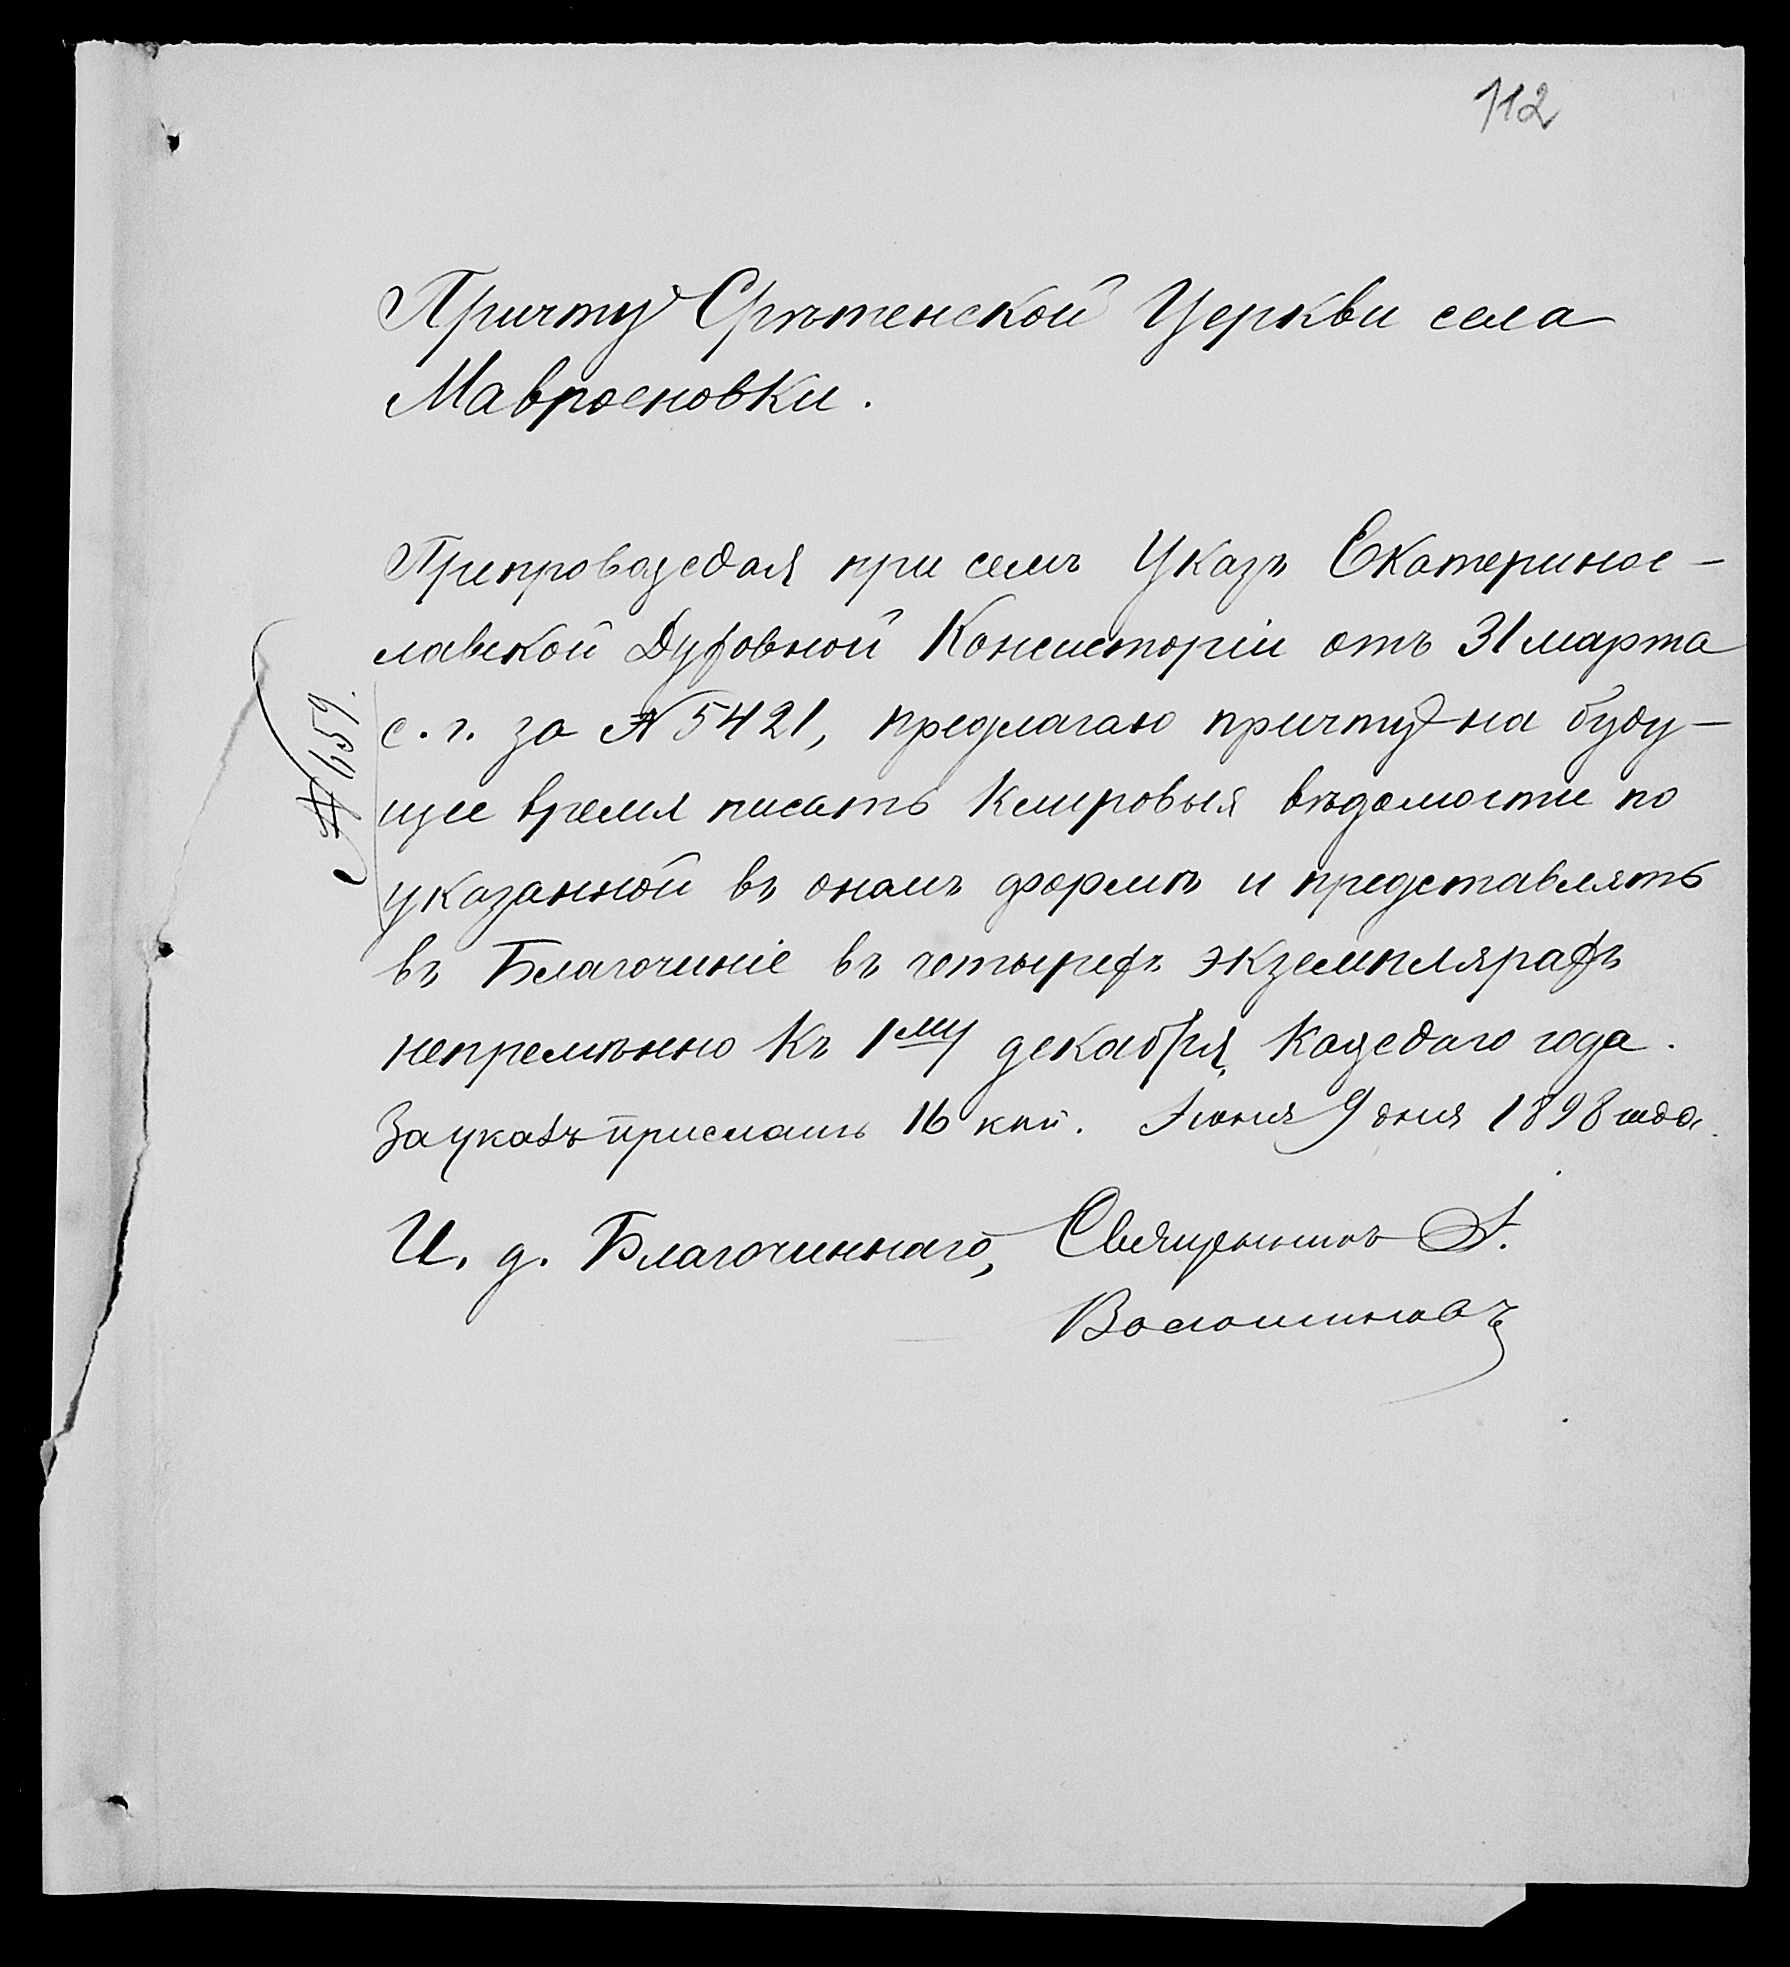 112
Причту Срѣтенской Церкви села
Мавроеновки.
Препровождая при семъ Указъ Екатеринос-
лавской Духовной Консисторіи отъ 31 марта
с. г. за № 5421, предлагаю причту на буду-
щее время писать клировыя вѣдомости по
указанной въ ономъ формѣ и представлять
въ Благочиніе въ четырехъ экземплярахъ
непремѣнно къ 1му декабря каждаго года.
За указъ прислать 16 коп. Іюня 9 дня 1898 года.
№ 659.
И. д. Благочиннаго, Священникъ А.
Волошиновъ